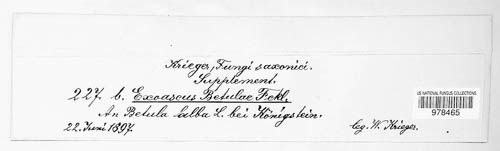 Krieger, Fungi saxonici.
Supplement.
227. b. Exoascus Betulae Fckl.
An Betula alba L. bei Königstein.
22. Juni 1897. leg. W. Krieger.
US NATIONAL FUNGUS COLLECTIONS
978465